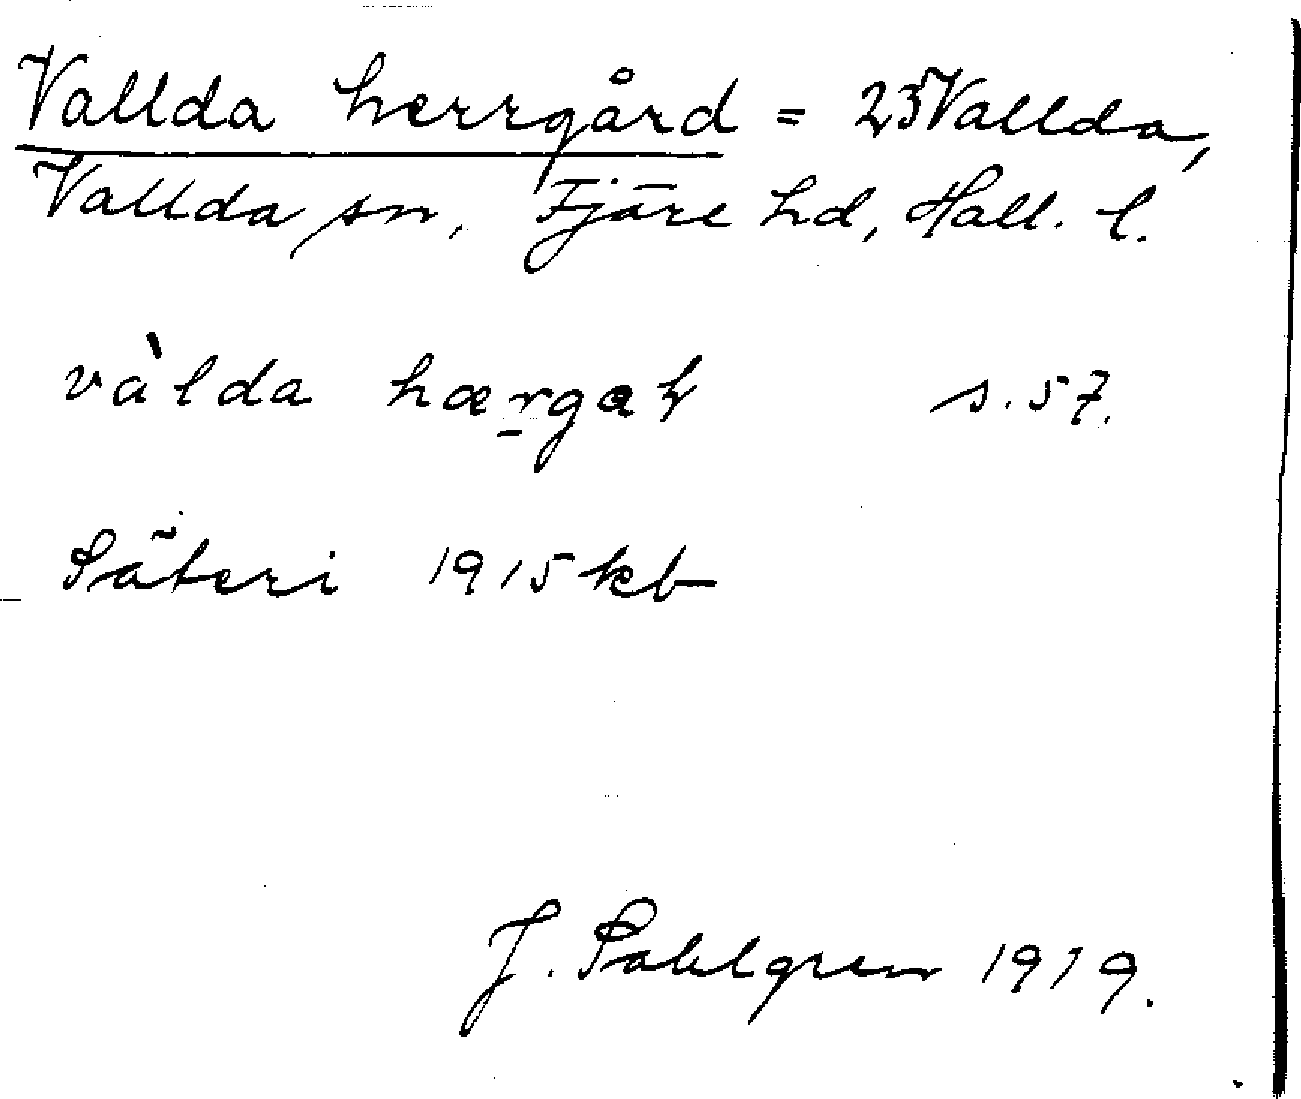 Vallda herrgård = 23 Vallda,
Vallda sn, Fjäre hd, Hall. l.
vàlda hærgaƚ s. 57.
Säteri 1915 kb
J. Sahlgren 1919.